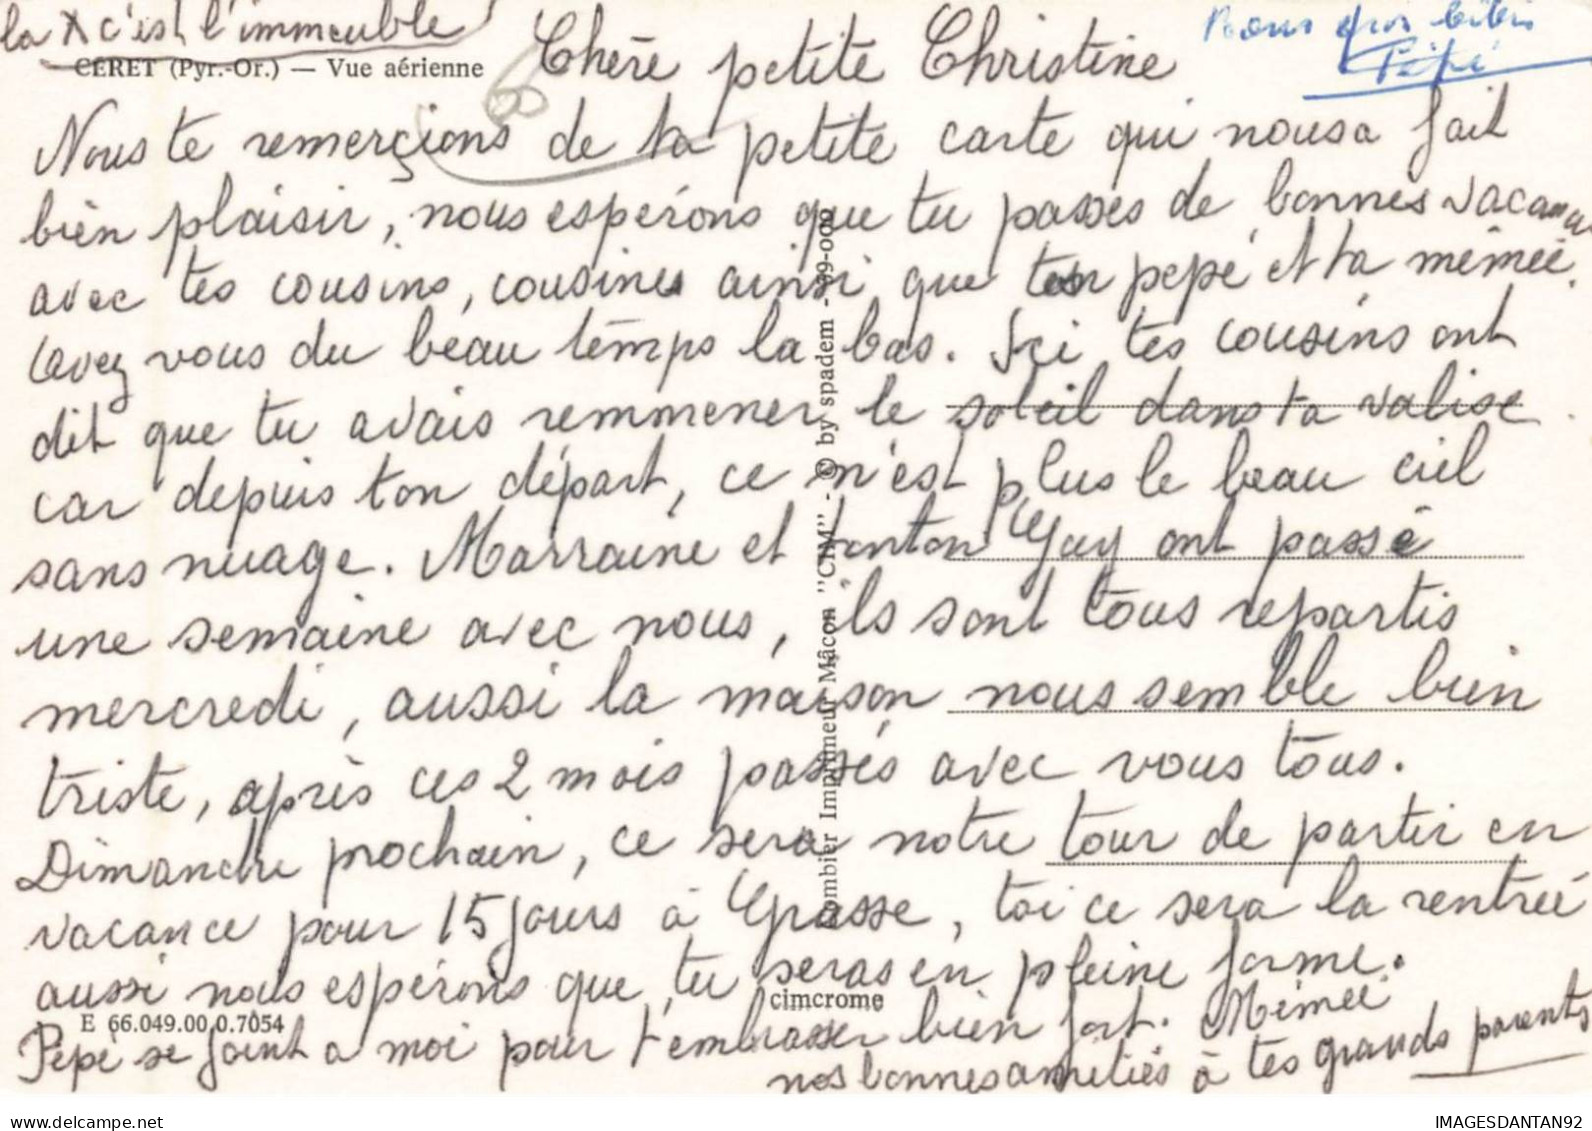 la X c'est l'immeuble
CÉRET (Pyr.-Or.) — Vue aérienne
Pépé
Chère petite Christine
Nous te remerçions de ta petite carte qui nous a fait
bien plaisir, nous espérons que tu passes de bonnes vacances
avec tes cousins, cousines ainsi que ton pépé et ta mémée.
avez vous du beau temps la bas. Ici tes cousins ont
dit que tu avais remmener le soleil dans ta valise
car depuis ton départ, ce n'est plus le beau ciel
sans nuage. Marraine et tonton Guy ont passé
une semaine avec nous, ils sont tous repartis
mercredi, aussi la maison nous semble bien
triste, après ces 2 mois passés avec vous tous.
Dimanche prochain, ce sera notre tour de partir en
vacance pour 15 jours à Grasse, toi ce sera la rentrée
aussi nous espérons que tu seras en pleine forme.
Pépé se joint a moi pour t'embrasser bien fort. Mémée
nos bonnes amitiés à tes grands parents
E 66.049.00.0.7054
cimcrome
Combier Imprimeur Mâcon "CIM" - © by spadem - 99-000
https://www.delcampe.net
IMAGESDANTAN92